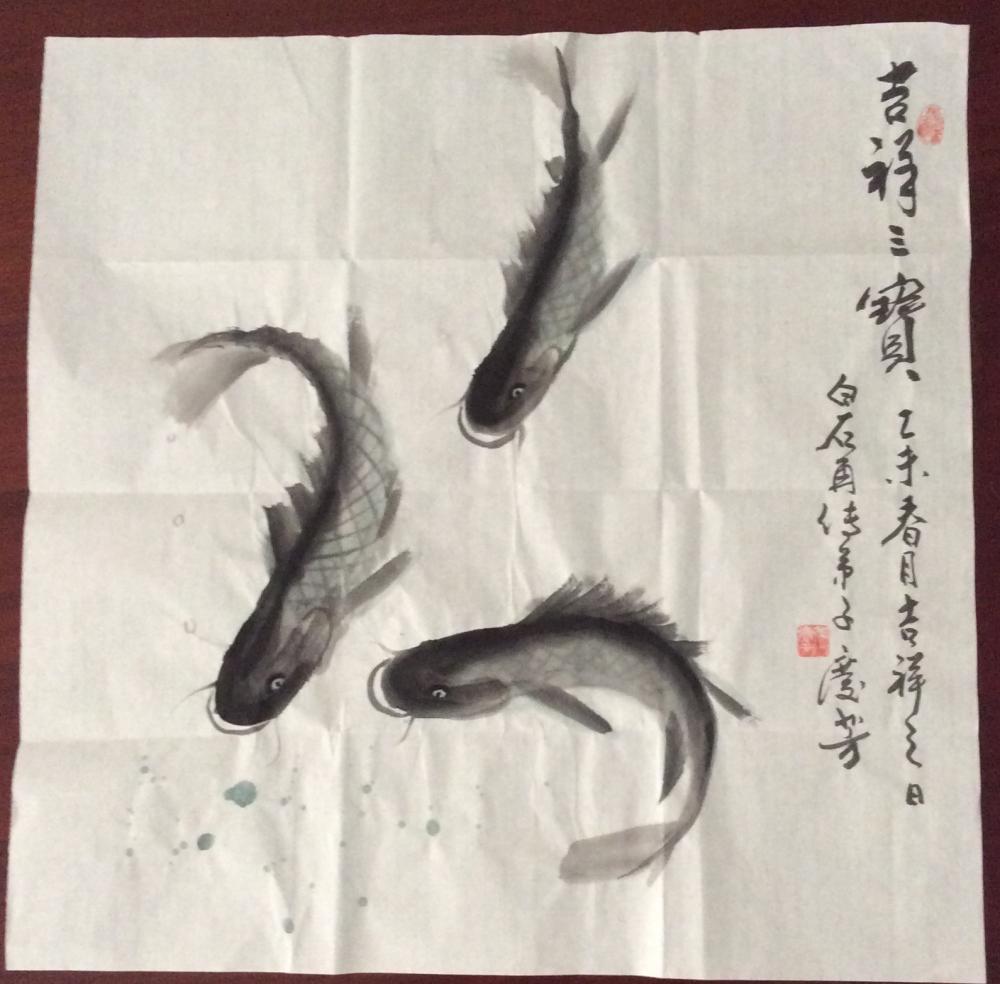 吉祥三寶、乙未春月吉祥之日
白石再传弟子庆芳